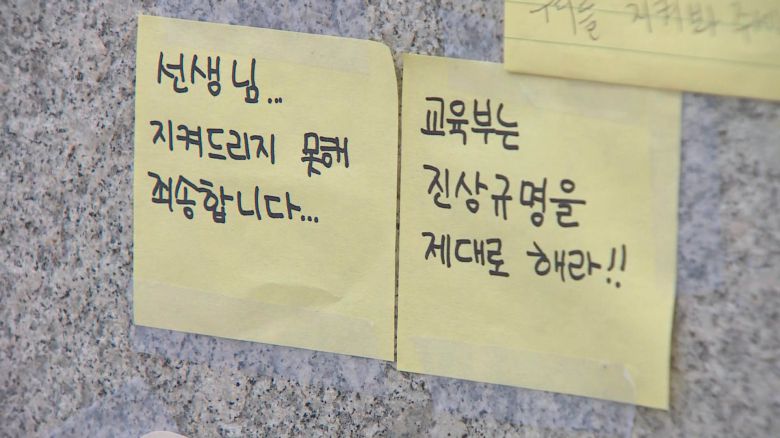 선생님...
지켜드리지 못해
죄송합니다...
교육부는
진상규명을
제대로 해라!!
지켜봐